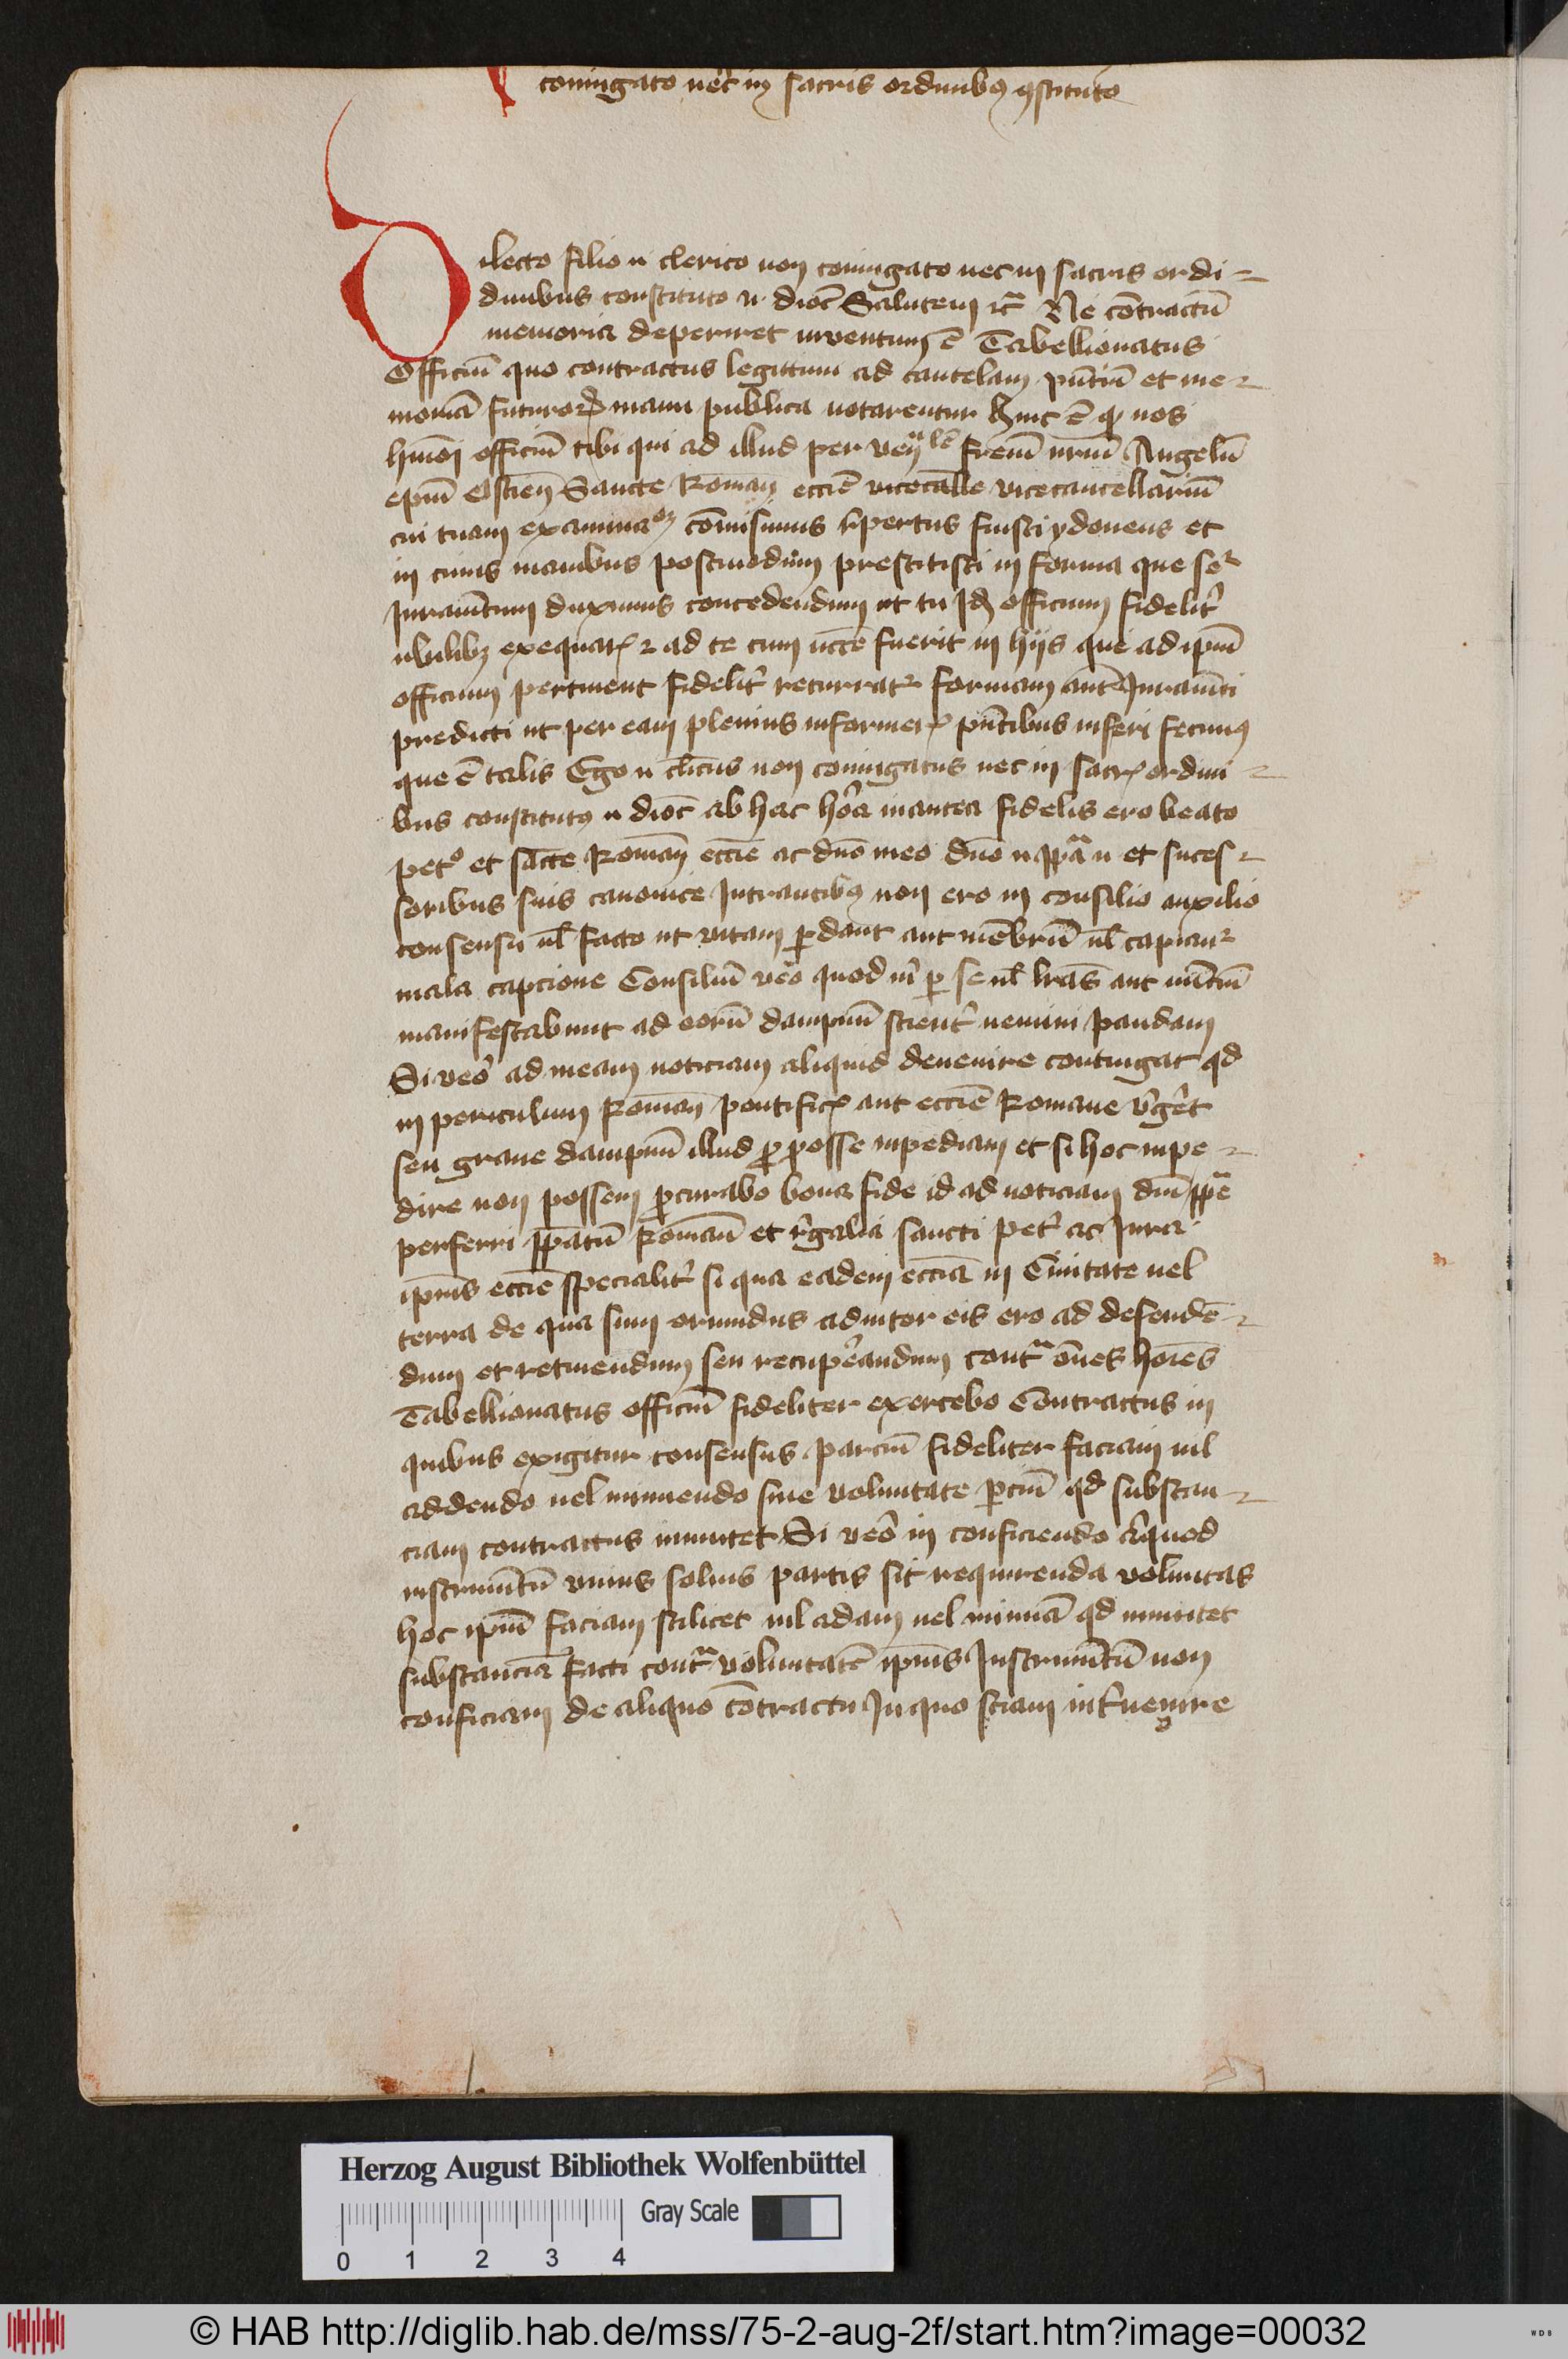 coniugato nec̄ in sacris ordinibꝰ ꝯstituto
Dilecto filio n clerico non coniugato nec in sacris ordi-
dinibus constituto n dioc̄ Salutem ⁊c̄ Ne cōtractuū
memoria deperiret inventum ē Tabellionatus
Officiū quo contractus legittimi ad cautelam pn̄tiū et me-
moriā futuroꝝ manu publica notarentur hinc ē ꝙ nos
hm̄oi officiū tibi qui ad illud per ven̄lē frem̄ nr̄m Angelū
epm̄ Ostien̄ Sancte Roman̄ eccl̄ie vicecālle vicecancellariū
cui tuam examinaōꝫ cōmisimus rep̄ertus fuisti ydoneus et
in cuius manibus postmodum prestitisti in forma que seʳ
Juramn̄tum duximus concedendum ut tu Jd̄ officium fidelit̄
ubilibꝫ exequaꝛ ⁊ ad te cum necc̄e fuerit in hijs que ad ipm̄
officium pertinent fidelit̄ recurratʳ formam aut̄ Juramn̄ti
predicti ut per eam plenius informeꝛ pn̄tibus inseri fecimꝰ
que ē talis Ego n cl̄icus non coniugatus nec in sacꝛ ordini-
bus constitutꝰ n dioc̄ ab hac hora inantea fidelis ero beato
petᵒ et sāctē Roman̄ eccl̄ie ac dn̄o meo dn̄o n pp̄a n et succes-
soribus suis canonice Intrantibꝰ non ero in consilio auxilio
consensu ul̄ facto ut vitam ꝑdant aut mēbrū ul̄ capianʳ
mala capcione Consiliū v̄o quod m̄ ꝑ se ul̄ lr̄as aut nūctiū
manifestabunt ad eorū dampnū scient̄ nemini pandam
Si v̄o ad meam noticiam aliquid devenire contingat qd̄
in periculum Roman̄ pontificꝭ aut eccl̄ie Romane v̄gēt
seu grave dampnū illud ꝓ posse inpediam et si hoc inpe-
dire non possem ꝓcurabo bona fide id ad noticiam dn̄i pp̄e
perferri pp̄atū Romanū et r̄galia sancti Petʳ ac Jura
ipīus eccl̄ie specialit̄ si qua eadem eccl̄ia in Civitate vel
terra de qua sum oriundus adiutor eis ero ad defendē-
dum et retinendum seu recup̄andum contᵃ om̄es hoīes
Tabellionatus officiū fideliter exercebo Contractus in
quibus exigitur consensus parciū fideliter faciam nil
addendo vel minuendo sine voluntate ꝑciū qd̄ substan-
ciam contractus inmutet Si v̄o in conficiendo aliquod
instrumn̄tū unius solius partis sit requirenda voluntas
hoc ipm̄ faciam scilicet nil adam vel minuā qd̄ inmutet
substanciā facti contᵃ voluntatē ipīus Instrumn̄tū non
conficiam de aliquo cōtractu In quo sciam int̄venire
Herzog August Bibliothek Wolfenbüttel
Gray Scale
0 1 2 3 4
© HAB http://diglib.hab.de/mss/75-2-aug-2f/start.htm?image=00032